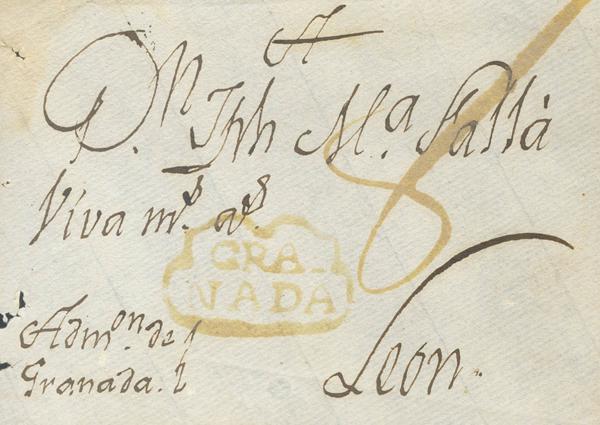 A
D.n Jph M.a Sallà
Viva m.s a.s
8
GRA-
NADA
Admon. de
Granada.
Leon.